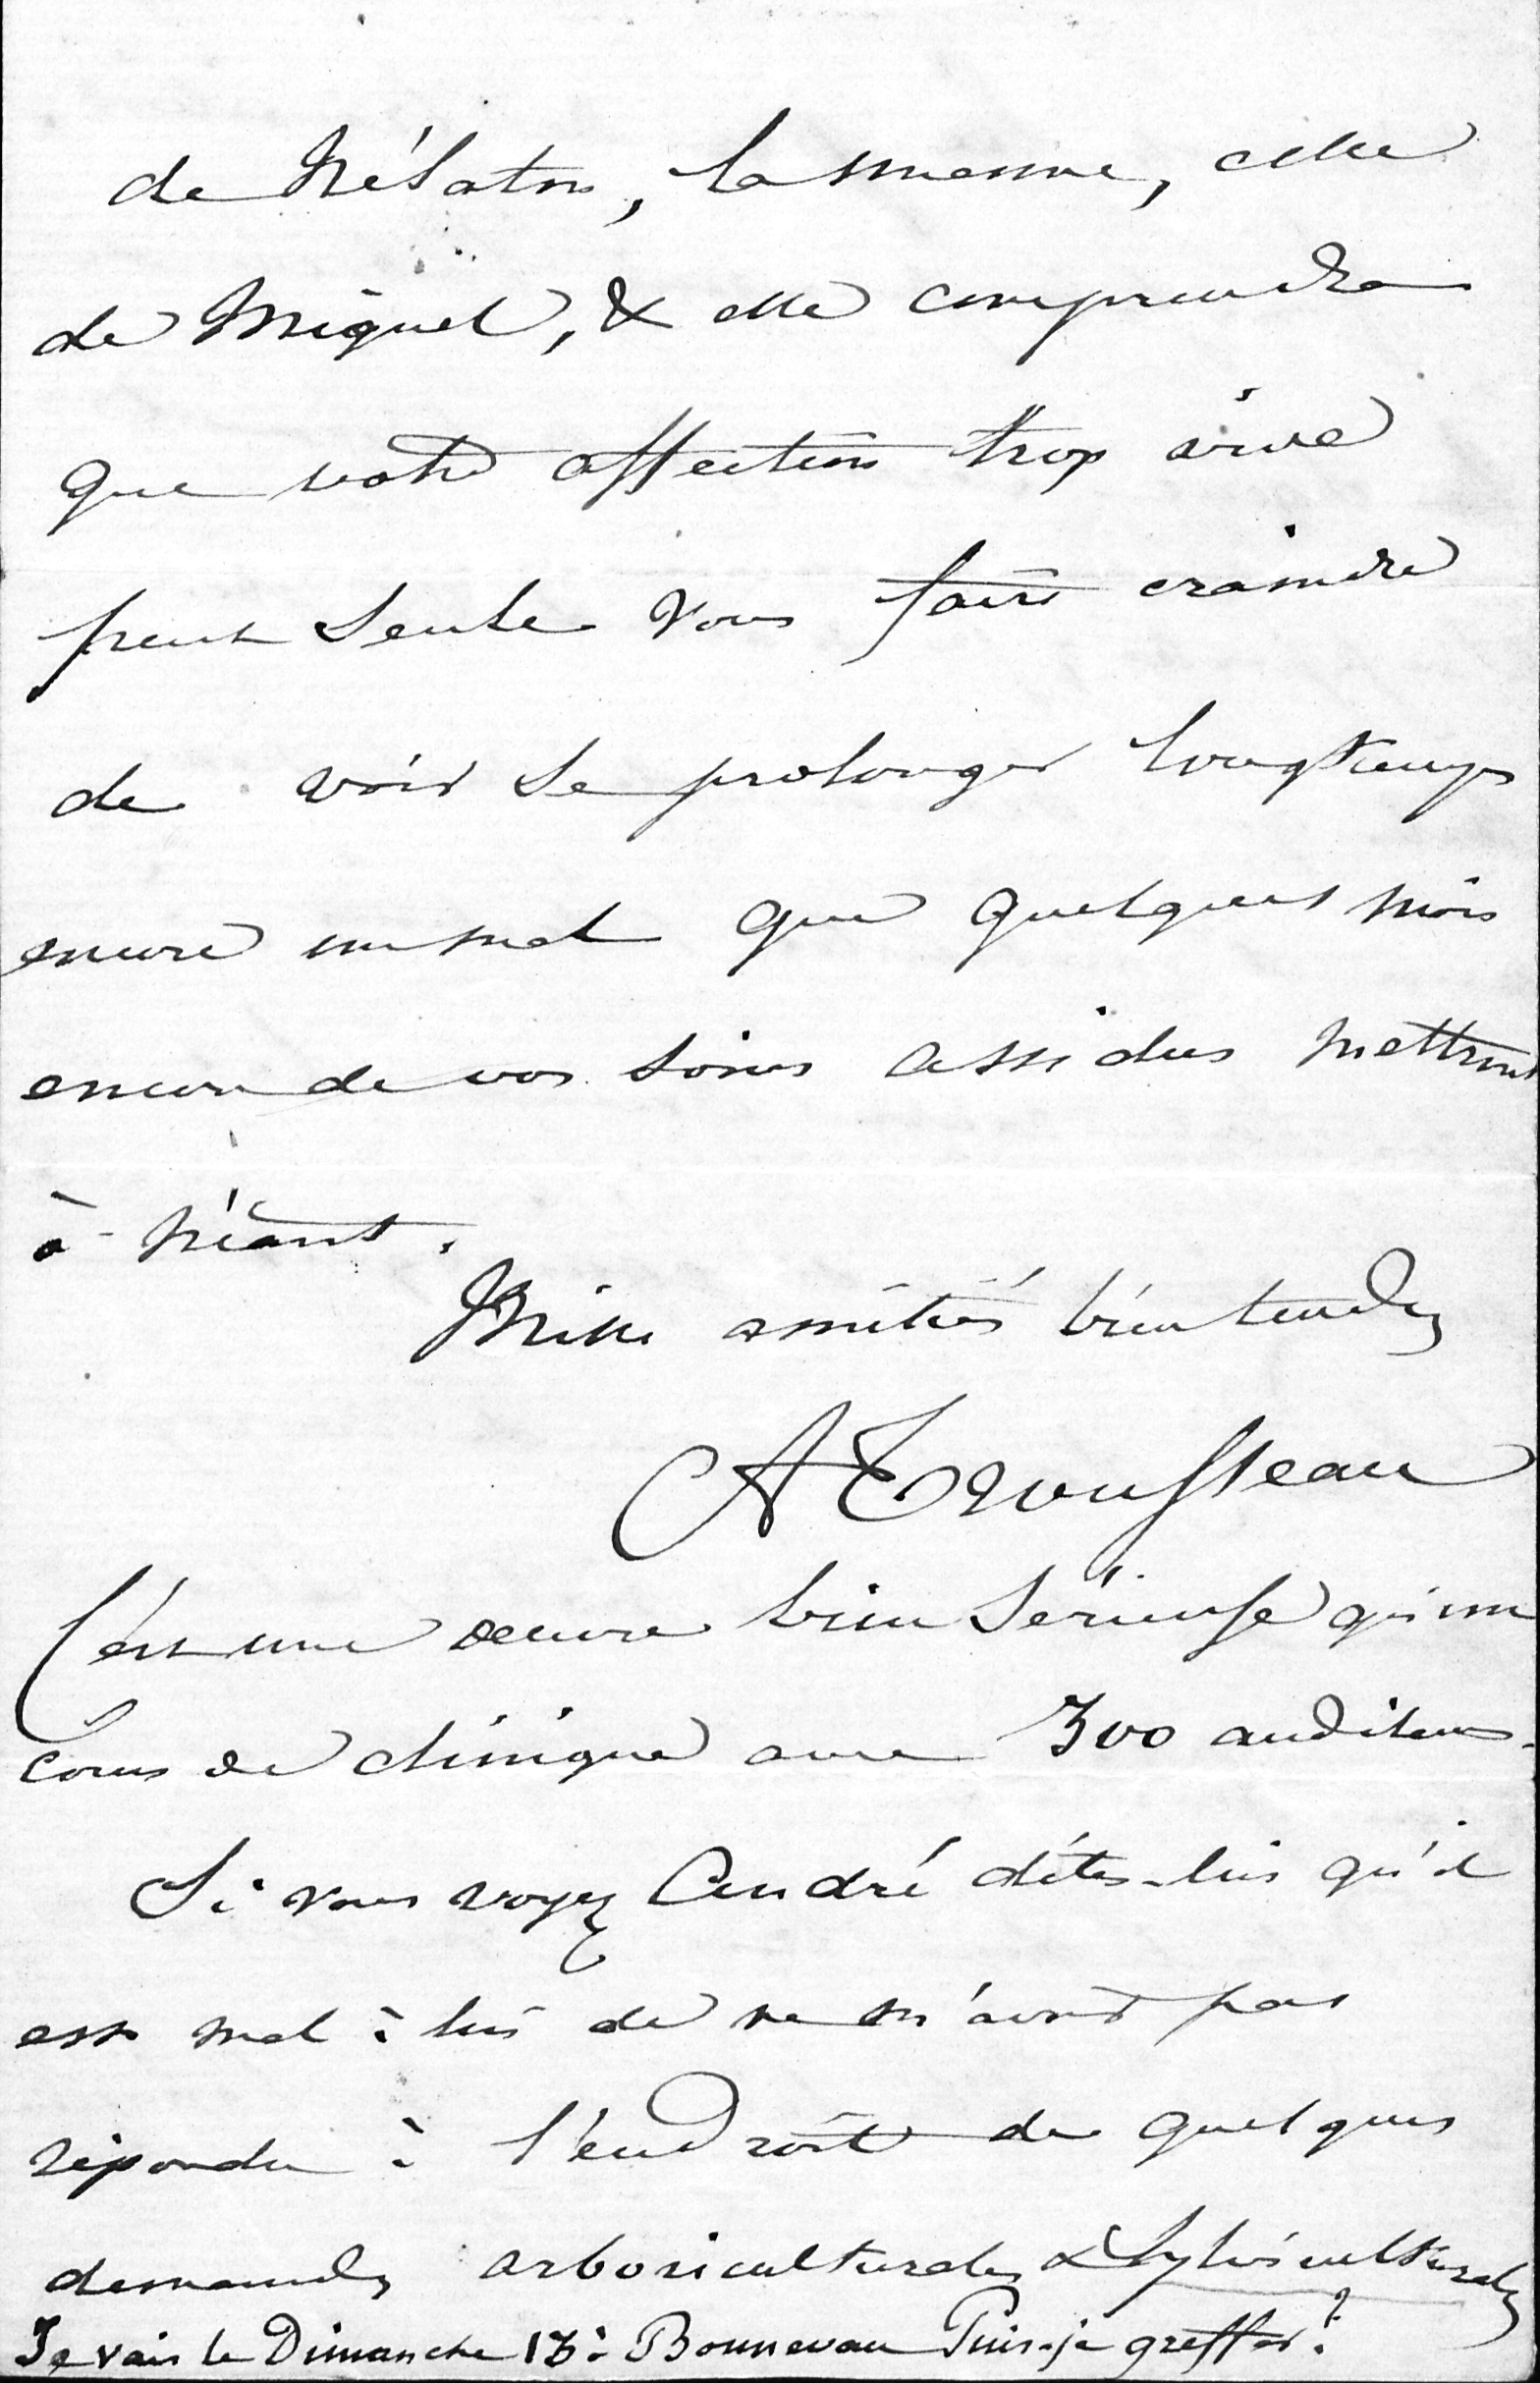 de Nélaton, la mienne, celle
de Miquel, & elle comprendra
que votre affection trop vive
peut seule vous faire craindre
de voir se prolonger longtemps
encore un mal que quelques mois
encore de vos soins assidus mettront
à néant.
Mille amitiés bien tendres
A Trousseau
C'est une oeuvre bien sérieuse qu'un
cours de clinique avec 300 auditeurs.
Si vous voyez André dites-lui qu'il
est mal à lui de ne m'avoir pas
répondu à l'endroit de quelques
demandes arboriculturales & sylviculturales
Je vais le Dimanche 13 à Bonnevau Puis-je greffer?